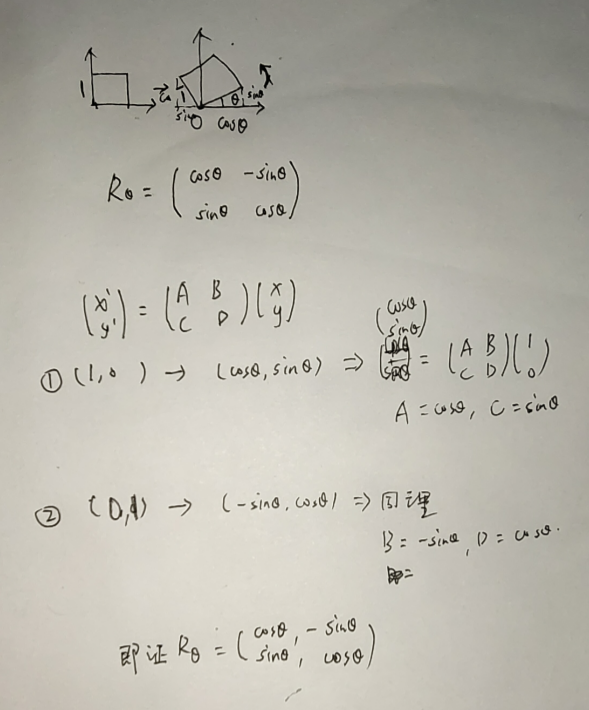 1 cosθ 1 θ sinθ
sinθ O cosθ
Rθ = ( cosθ -sinθ
sinθ cosθ )
(x' y') = (A B C D) (x y)
① (1,0) → (cosθ, sinθ) ⇒ (cosθ sinθ) = (A B C D) (1 0)
A = cosθ, C = sinθ
② (0,1) → (-sinθ, cosθ) ⇒ 同理
B = -sinθ, D = cosθ.
即证 Rθ = ( cosθ, -sinθ
sinθ, cosθ )